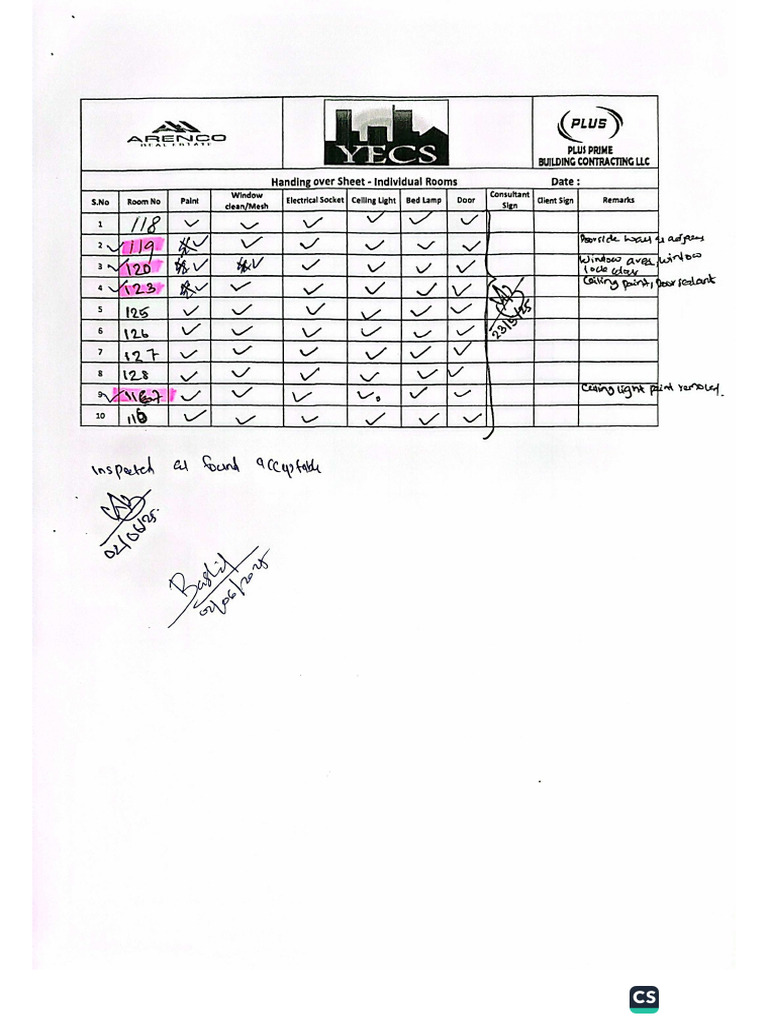 ARENCO
REAL ESTATE
YECS
PLUS
PLUS PRIME
BUILDING CONTRACTING LLC
Handing over Sheet - Individual Rooms Date :
S.No Room No Paint Window clean/Mesh Electrical Socket Ceiling Light Bed Lamp Door Consultant Sign Client Sign Remarks
1 118 ✓ ✓ ✓ ✓ ✓ ✓
2 ✓ 119 ✓ ✓ ✓ ✓ ✓ ✓ Doorside wall
3 ✓ 120 ✓ ✓ ✓ ✓ ✓ ✓ Window area, window lock
4 ✓ 123 ✓ ✓ ✓ ✓ ✓ ✓ Ceiling paint, Door sealant
5 125 ✓ ✓ ✓ ✓ ✓ ✓
6 126 ✓ ✓ ✓ ✓ ✓ ✓
7 127 ✓ ✓ ✓ ✓ ✓ ✓
8 128 ✓ ✓ ✓ ✓ ✓ ✓
9 ✓ ✓ ✓ ✓ ✓ ✓ ✓ Ceiling light paint removed.
10 ✓ ✓ ✓ ✓ ✓ ✓
23/5/25
Inspected found acceptable
02/06/25.
Bashid
02/06/2025
CS